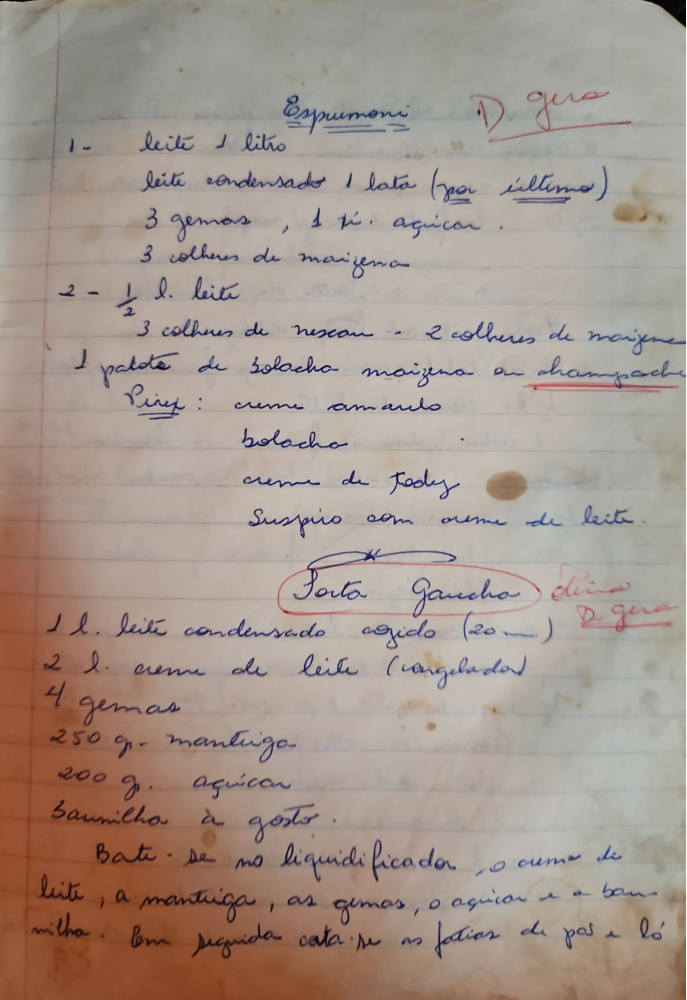 Espumoni
D. gera
1- leite 1 litro
leite condensado 1 lata (por último)
3 gemas, 1 xi. açúcar.
3 colheres de maizena
2 - 1/2 l. leite
3 colheres de nescau - 2 colheres de maizena
1 pacote de bolacha maizena ou champache
Pirex: creme amarelo
bolacha
creme de Toddy
Suspiro com creme de leite.
Torta Gaucha
D. gera
1 l. leite condensado cozido (20 m)
2 l. creme de leite (congelador)
4 gemas
250 g. manteiga
200 g. açúcar
Baunilha à gosto.
Bate-se no liquidificador, o creme de
leite, a manteiga, as gemas, o açúcar e a bau-
nilha. Em seguida corta-se as fatias de pão e ló